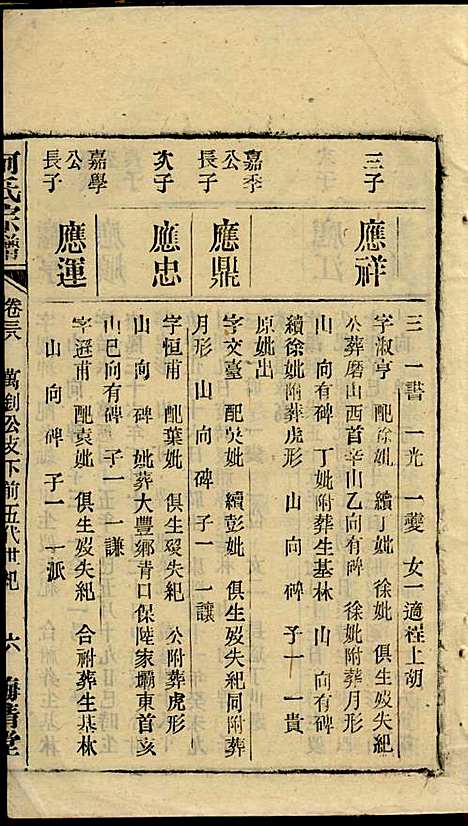 三 一書 一光 一變 女一適程上胡
三子
應祥
字淑亨 配徐妣 續丁妣 徐妣 俱生歿失紀
公葬磨山西首辛山乙向有碑 徐妣附葬月形
山 向有碑 丁妣附葬生基林 山 向有碑
續徐妣附葬虎形 山 向 碑 子一 一貴
原妣出
嘉季公長子
應鼎
字文臺 配吳妣 續彭妣 俱生歿失紀同附葬
月形 山 向 碑 子一 一讓
次子
應忠
字恒甫 配葉妣 俱生歿失紀 公附葬虎形
山 向 碑 妣葬大豐鄉青口保陸家壩東首亥
山巳向有碑 子一 一謙
嘉學公長子
應運
字 甫 配袁妣 俱生歿失紀 合祔葬生基林
山 向 碑 子一 一派
何氏宗譜
卷三 萬釗公支下前五代世紀
六